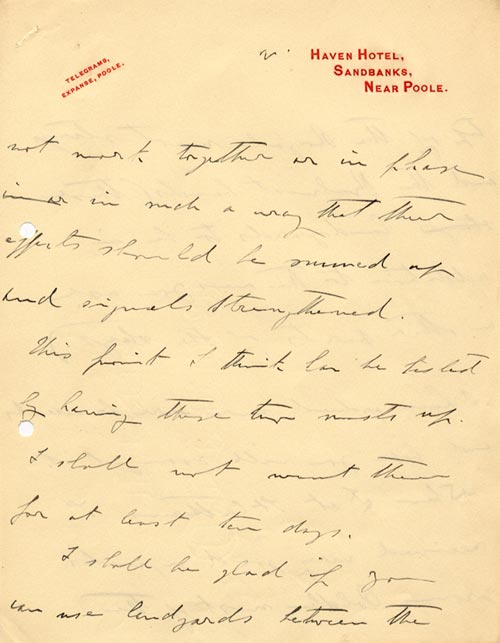 TELEGRAMS,
EXPANSE, POOLE.
2.
HAVEN HOTEL,
SANDBANKS,
NEAR POOLE.
not work together or in phase
or in such a way that their
effects should be summed up
and signals strengthened.
This point I think can be tested
by having these two masts up.
I shall not want them
for at least ten days.
I shall be glad if you
can use landyards between the